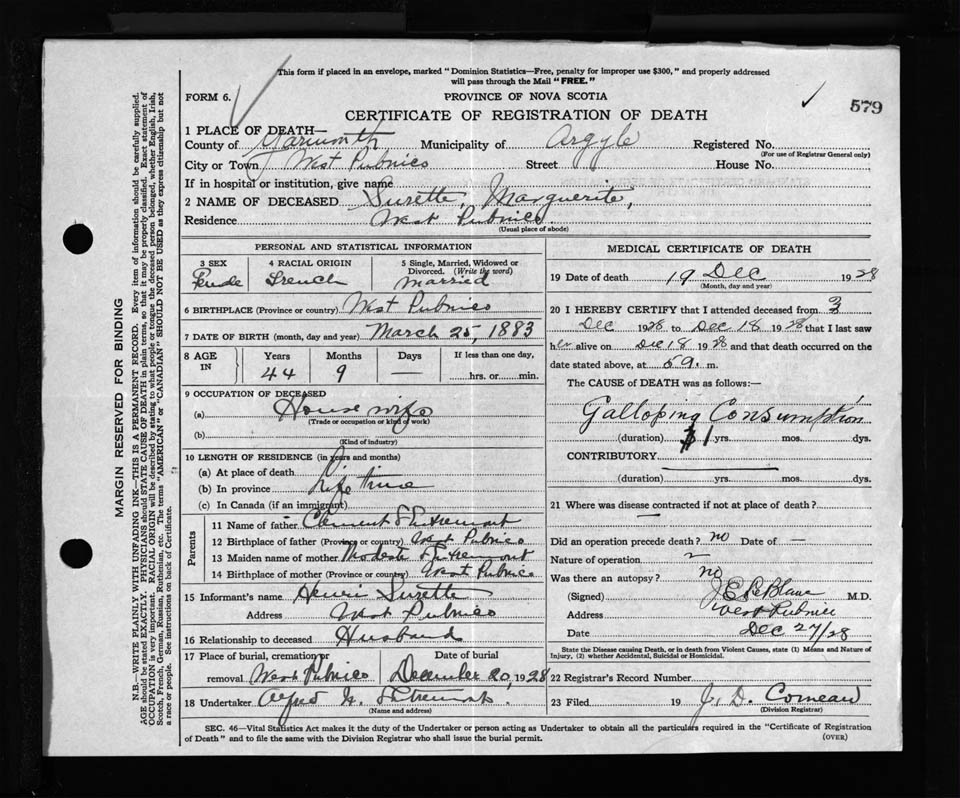 This form if placed in an envelope, marked "Dominion Statistics—Free, penalty for improper use $300," and properly addressed
will pass through the Mail "FREE."
FORM 6.
PROVINCE OF NOVA SCOTIA
579
CERTIFICATE OF REGISTRATION OF DEATH
1 PLACE OF DEATH—
County of Yarmouth Municipality of Argyle Registered No.
(For use of Registrar General only)
City or Town West Pubnico Street House No.
If in hospital or institution, give name
2 NAME OF DECEASED Surette, Marguerite,
Residence West Pubnico.
(Usual place of abode)
PERSONAL AND STATISTICAL INFORMATION
3 SEX 4 RACIAL ORIGIN 5 Single, Married, Widowed or
Divorced. (Write the word)
French Married
6 BIRTHPLACE (Province or country) West Pubnico
7 DATE OF BIRTH (month, day and year) March 25, 1883
8 AGE IN Years Months Days If less than one day,
44 9 — hrs. or min.
9 OCCUPATION OF DECEASED
(a) House wife
(Trade or occupation or kind of work)
(b)
(Kind of industry)
10 LENGTH OF RESIDENCE (in years and months)
(a) At place of death
(b) In province Life time
(c) In Canada (if an immigrant)
Parents
11 Name of father Clement
12 Birthplace of father (Province or country) West Pubnico
13 Maiden name of mother Modeste
14 Birthplace of mother (Province or country) West Pubnico
15 Informant's name Henri Surette
Address West Pubnico
16 Relationship to deceased Husband
17 Place of burial, cremation or Date of burial
removal West Pubnico December 20, 1928
18 Undertaker
(Name and address)
MEDICAL CERTIFICATE OF DEATH
19 Date of death 19 Dec 1928
(Month, day and year)
20 I HEREBY CERTIFY that I attended deceased from 3
Dec 1928 to Dec 18 1928 that I last saw
her alive on Dec 18 1928 and that death occurred on
date stated above, at m.
The CAUSE of DEATH was as follows:—
Galloping Consumption
(duration) 1 yrs. mos. dys.
CONTRIBUTORY
(duration) yrs. mos. dys.
21 Where was disease contracted if not at place of death?
Did an operation precede death? no Date of —
Nature of operation
Was there an autopsy? no
(Signed) J E LeBlanc M.D.
Address West Pubnico
Date Dec 27/28
State the Disease causing Death, or in death from Violent Causes, state (1) Means and Nature of
Injury, (2) whether Accidental, Suicidal or Homicidal.
22 Registrar's Record Number
23 Filed 19 J. D. Comeau
(Division Registrar)
SEC. 46—Vital Statistics Act makes it the duty of the Undertaker or person acting as Undertaker to obtain all the particulars required in the "Certificate of Registration
of Death" and to file the same with the Division Registrar who shall issue the burial permit.
(OVER)
MARGIN RESERVED FOR BINDING
N.B.—WRITE PLAINLY WITH UNFADING INK—THIS IS A PERMANENT RECORD. Every item of information should be carefully supplied.
AGE should be stated EXACTLY. PHYSICIANS should STATE CAUSE OF DEATH in plain terms, so that it may be properly classified. Exact statement of
OCCUPATION is very important. RACIAL ORIGIN will be described by stating to what people or tongue the deceased person belonged, whether English, Irish,
Scotch, French, German, Russian, Ruthenian, etc. The terms "AMERICAN" or "CANADIAN" SHOULD NOT BE USED as they express citizenship but not
a race or people. See instructions on back of Certificate.